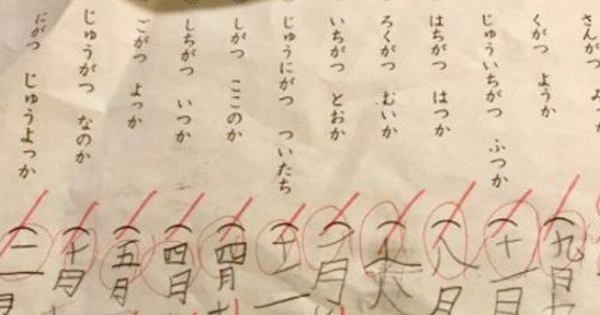 さんがつ
くがつ ようか
じゅういちがつ ふつか
はちがつ はつか
ろくがつ むいか
いちがつ とおか
じゅうにがつ ついたち
しがつ ここのか
しちがつ いつか
ごがつ よっか
じゅうがつ なのか
にがつ じゅうよっか
(九日九
(十一日
(八月
(一月
(四月
(四日
(五月
(十月
(二